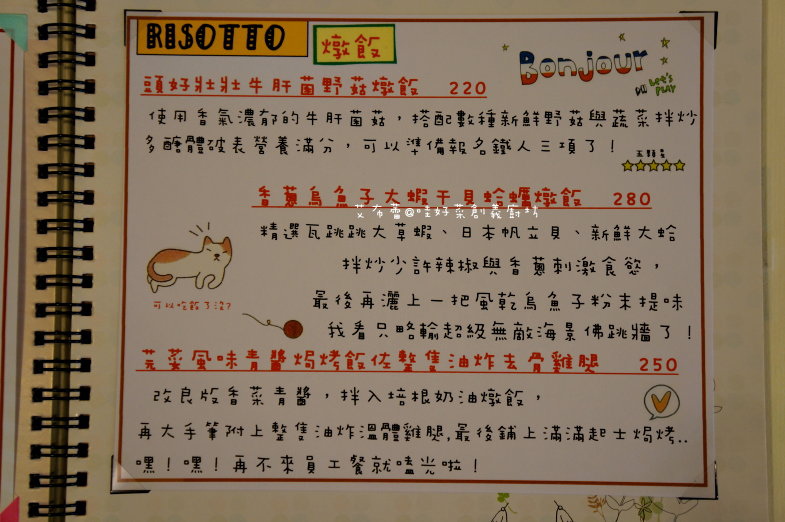 RISOTTO 燉飯
Bonjour
Let's
PLAY
頭好壯壯牛肝菌野菇燉飯 220
使用香氣濃郁的牛肝菌菇，搭配數種新鮮野菇與蔬菜拌炒
多醣體破表營養滿分，可以準備報名鐵人三項了！
五顆星
香蔥烏魚子大蝦干貝蛤蠣燉飯 280
艾布蕾@哇好菜創義廚坊
精選瓦跳跳大草蝦、日本帆立貝、新鮮大蛤
拌炒少許辣椒與香蔥刺激食慾，
可以吃飯了沒?
最後再灑上一把風乾烏魚子粉末提味
我看只略輸超級無敵海景佛跳牆了！
芫荽風味青醬焗烤飯佐整隻油炸去骨雞腿 250
改良版香菜青醬，拌入培根奶油燉飯，
再大手筆附上整隻油炸溫體雞腿,最後鋪上滿滿起士焗烤..
嘿！嘿！再不來員工餐就嗑光啦！